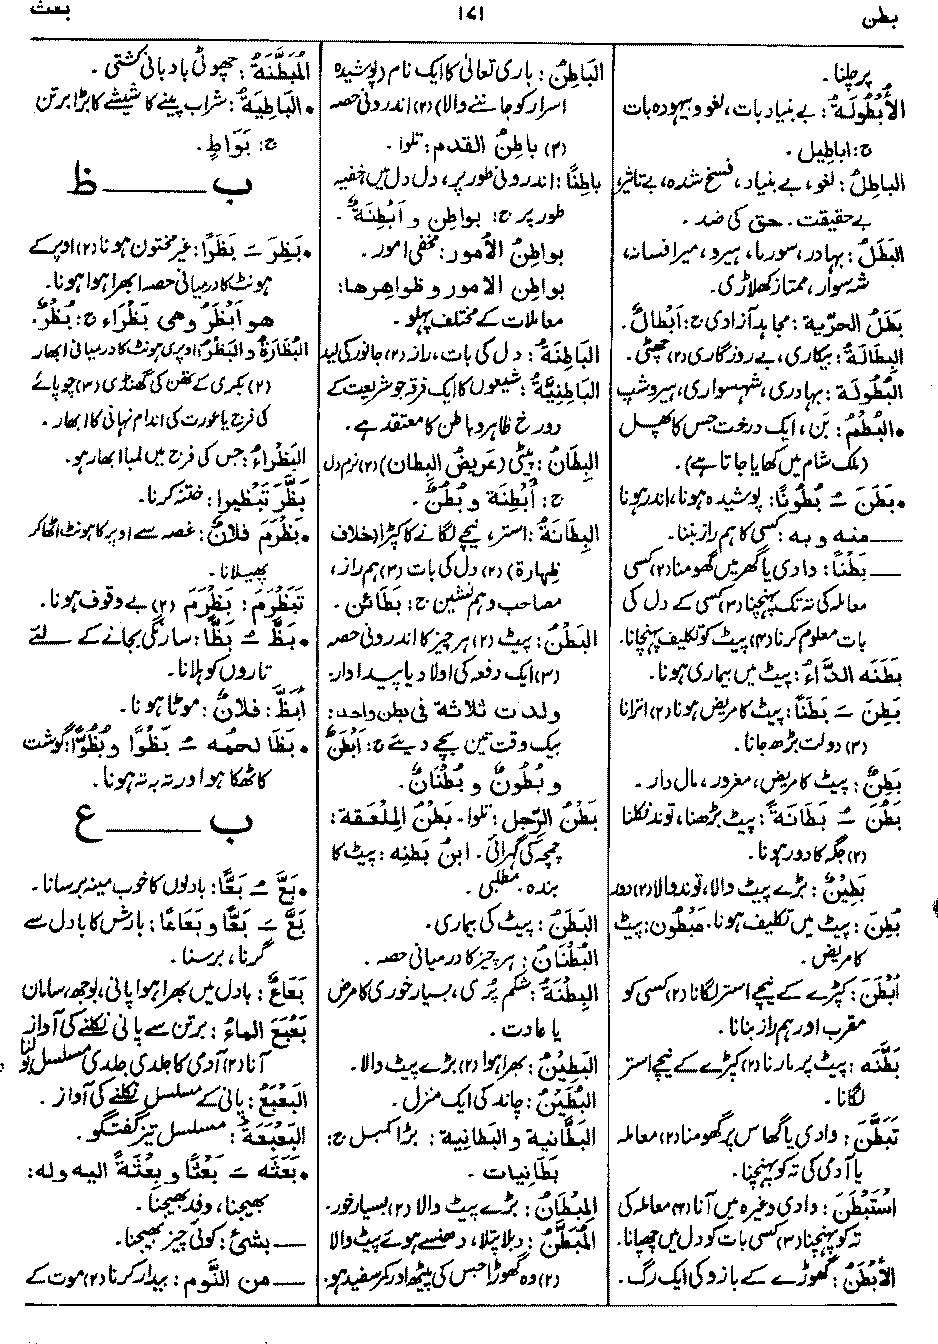 بطن
۱۷۱
بعث
پر چلنا۔
الأُبْطُولَةُ: بے بنیاد بات، لغو و بیہودہ بات
ج: اباطیل۔
الباطِلُ: لغو، بے بنیاد، فسخ شدہ، بے تاثیر،
بے حقیقت۔ حق کی ضد۔
البَطَلُ: بہادر، سورما، ہیرو، میر افسانہ،
شہ سوار، ممتاز کھلاڑی۔
بَطَلُ الحُرِّية: مجاہد آزادی ج: اَبْطالٌ۔
البِطَالَةُ: بیکاری، بے روزگاری (۲) چھٹی۔
البُطُولَة: بہادری، شہسواری، ہیروشپ
•البُطْمُ: بَن، ایک درخت جس کا پھل
(ملک شام میں کھایا جاتا ہے)۔
•بَطَنَ ـُ بُطُونًا: پوشیدہ ہونا، اندر ہونا
ــــ منه و به: کسی کا ہم راز بننا۔
ــــ بَطْنًا: وادی یا گھر میں گھومنا (۲) کسی
معاملہ کی تہ تک پہنچنا (۳) کسی کے دل کی
بات معلوم کرنا (۴) پیٹ کو تکلیف پہنچانا۔
بَطَنَه الدَّاءُ: پیٹ میں بیماری ہونا۔
بَطِنَ ـَ بَطَنًا: پیٹ کا مریض ہونا (۲) اترانا
(۳) دولت بڑھ جانا۔
بَطِنٌ: پیٹ کا مریض، مغرور، مال دار۔
بَطُنَ ـُ بَطَانَةً: پیٹ بڑھنا، توند نکلنا
(۲) جگہ کا دور ہونا۔
بَطِيْنٌ: بڑے پیٹ والا، توند والا (۲) دور
بُطِنَ: پیٹ میں تکلیف ہونا۔ مَبْطُون: پیٹ
کا مریض۔
اَبْطَنَ: کپڑے کے نیچے استر لگانا (۲) کسی کو
مقرب اور ہم راز بنانا۔
بَطَّنَه: پیٹ پر مارنا (۲) کپڑے کے نیچے استر
لگانا۔
تَبَطَّنَ: وادی یا گھاس پر گھومنا (۲) معاملہ
یا آدمی کی تہ کو پہنچنا۔
اسْتَبْطَنَ: وادی وغیرہ میں آنا (۲) معاملہ کی
تہ کو پہنچنا (۳) کسی بات کو دل میں چھپانا۔
الأَبْطَنُ: گھوڑے کے بازو کی ایک رگ۔
البَاطِنُ: باری تعالی کا ایک نام (پوشیدہ
اسرار کو جاننے والا) (۲) اندرونی حصہ
(۳) باطِنُ القدم: تلوا۔
باطِنًا: اندرونی طور پر، دل دل میں، خفیہ
طور پر ج: بواطِن و اَبْطِنَةٌ۔
بواطِنُ الأمور: مخفی امور۔
بواطِن الامور و ظواهرها:
معاملات کے مختلف پہلو۔
البَاطِنَةُ: دل کی بات، راز (۲) جانور کی لید
البَاطِنِيَّةُ: شیعوں کا ایک فرقہ جو شریعت کے
دو رخ ظاہر و باطن کا معتقد ہے۔
البِطَانُ: پیٹی (عَرِيضُ البِطان) (۲) نرم دل
ج: أَبْطِنَة و بُطُنٌ۔
البِطَانَةُ: استر، نیچے لگانے کا کپڑا (خلاف
ظِهارة) (۲) دل کی بات (۳) ہم راز،
مصاحب و ہم نشین ج: بَطائن۔
البَطْنُ: پیٹ (۲) ہر چیز کا اندرونی حصہ
(۳) ایک دفعہ کی اولاد یا پیداوار:
ولدت ثلاثة في بطن واحد:
بیک وقت تین بچے دیئے ج: اَبْطُنٌ
و بُطُونٌ و بُطْنَانٌ۔
بَطْنُ الرِّجل: تلوا۔ بَطْنُ المِلْعَقة:
چمچہ کی گہرائی۔ ابنُ بَطنِه: پیٹ کا
بندہ۔ مطلبی۔
البَطَنُ: پیٹ کی بیماری۔
البُطْنَانُ: ہر چیز کا درمیانی حصہ۔
البِطْنَةُ: شکم پُری، بسیار خوری کا مرض
یا عادت۔
البَطِيْنُ: بھرا ہوا (۲) بڑے پیٹ والا۔
البُطَيْنُ: چاند کی ایک منزل۔
البَطَّانية والبَطَانِية: بڑا کمبل ج:
بَطَانِيات۔
المِبْطَانُ: بڑے پیٹ والا (۲) بسیار خور۔
المُبَطَّنُ: دبلا پتلا، دھنسے ہوئے پیٹ والا
(۲) وہ گھوڑا جس کی پیٹھ اور کمر سفید ہو۔
المُبَطَّنَةُ: چھوٹی بادبانی کشتی۔
•البَاطِيَةُ: شراب پینے کا شیشے کا بڑا برتن
ج: بَوَاطٍ۔
ب ـــــــ ظ
•بَظِرَ ـَ بَظَرًا: غیر مختون ہونا (۲) اوپر کے
ہونٹ کا درمیانی حصہ ابھرا ہوا ہونا۔
هو اَبْظَرُ وهي بَظْرَاء ج: بُظْرٌ۔
البُظَارَةُ و البَظْرُ: اوپری ہونٹ کا درمیانی ابھار
(۲) بکری کے تھن کی گھنڈی (۳) چوپائے
کی فرج یا عورت کی اندام نہانی کا ابھار۔
البَظْراءُ: جس کی فرج میں لمبا ابھار ہو۔
بَظَّرَ تَبْظيرا: ختنہ کرنا۔
•بَظْرَمَ فلانٌ: غصہ سے اوپر کا ہونٹ اٹھا کر
پھیلانا۔
تَبَظْرَمَ: بَظْرَمَ (۲) بے وقوف ہونا۔
•بَظَّ ـُ بَظًّا: سارنگی بجانے کے لئے
تاروں کو ہلانا۔
اَبَظَّ: فلانٌ: موٹا ہونا۔
•بَظَا لحمُه ـُ بَظْوًا و بُظُوًّا: گوشت
کا ٹھکا ہوا اور تہ بہ تہ ہونا۔
ب ـــــــ ع
•بَعَّ ـُ بَعًّا: بادلوں کا خوب مینہ برسانا۔
بَعَّ ـَ بَعًّا و بَعَاعًا: بارش کا بادل سے
گرنا، برسنا۔
بَعَاعٌ: بادل میں بھرا ہوا پانی، بوجھ، سامان
بَعْبَعَ الماءُ: برتن سے پانی نکلنے کی آواز
آنا (۲) آدمی کا جلدی جلدی مسلسل بولنا
البَعْبَعُ: پانی کے مسلسل نکلنے کی آواز۔
البَعْبَعَةُ: مسلسل تیز گفتگو۔
•بَعَثَه ـَ بَعْثًا و بِعْثَةً اليه وله:
بھیجنا، وفد بھیجنا۔
ــــ بشئ: کوئی چیز بھیجنا۔
ــــ من النَّوم: بیدار کرنا (۲) موت کے